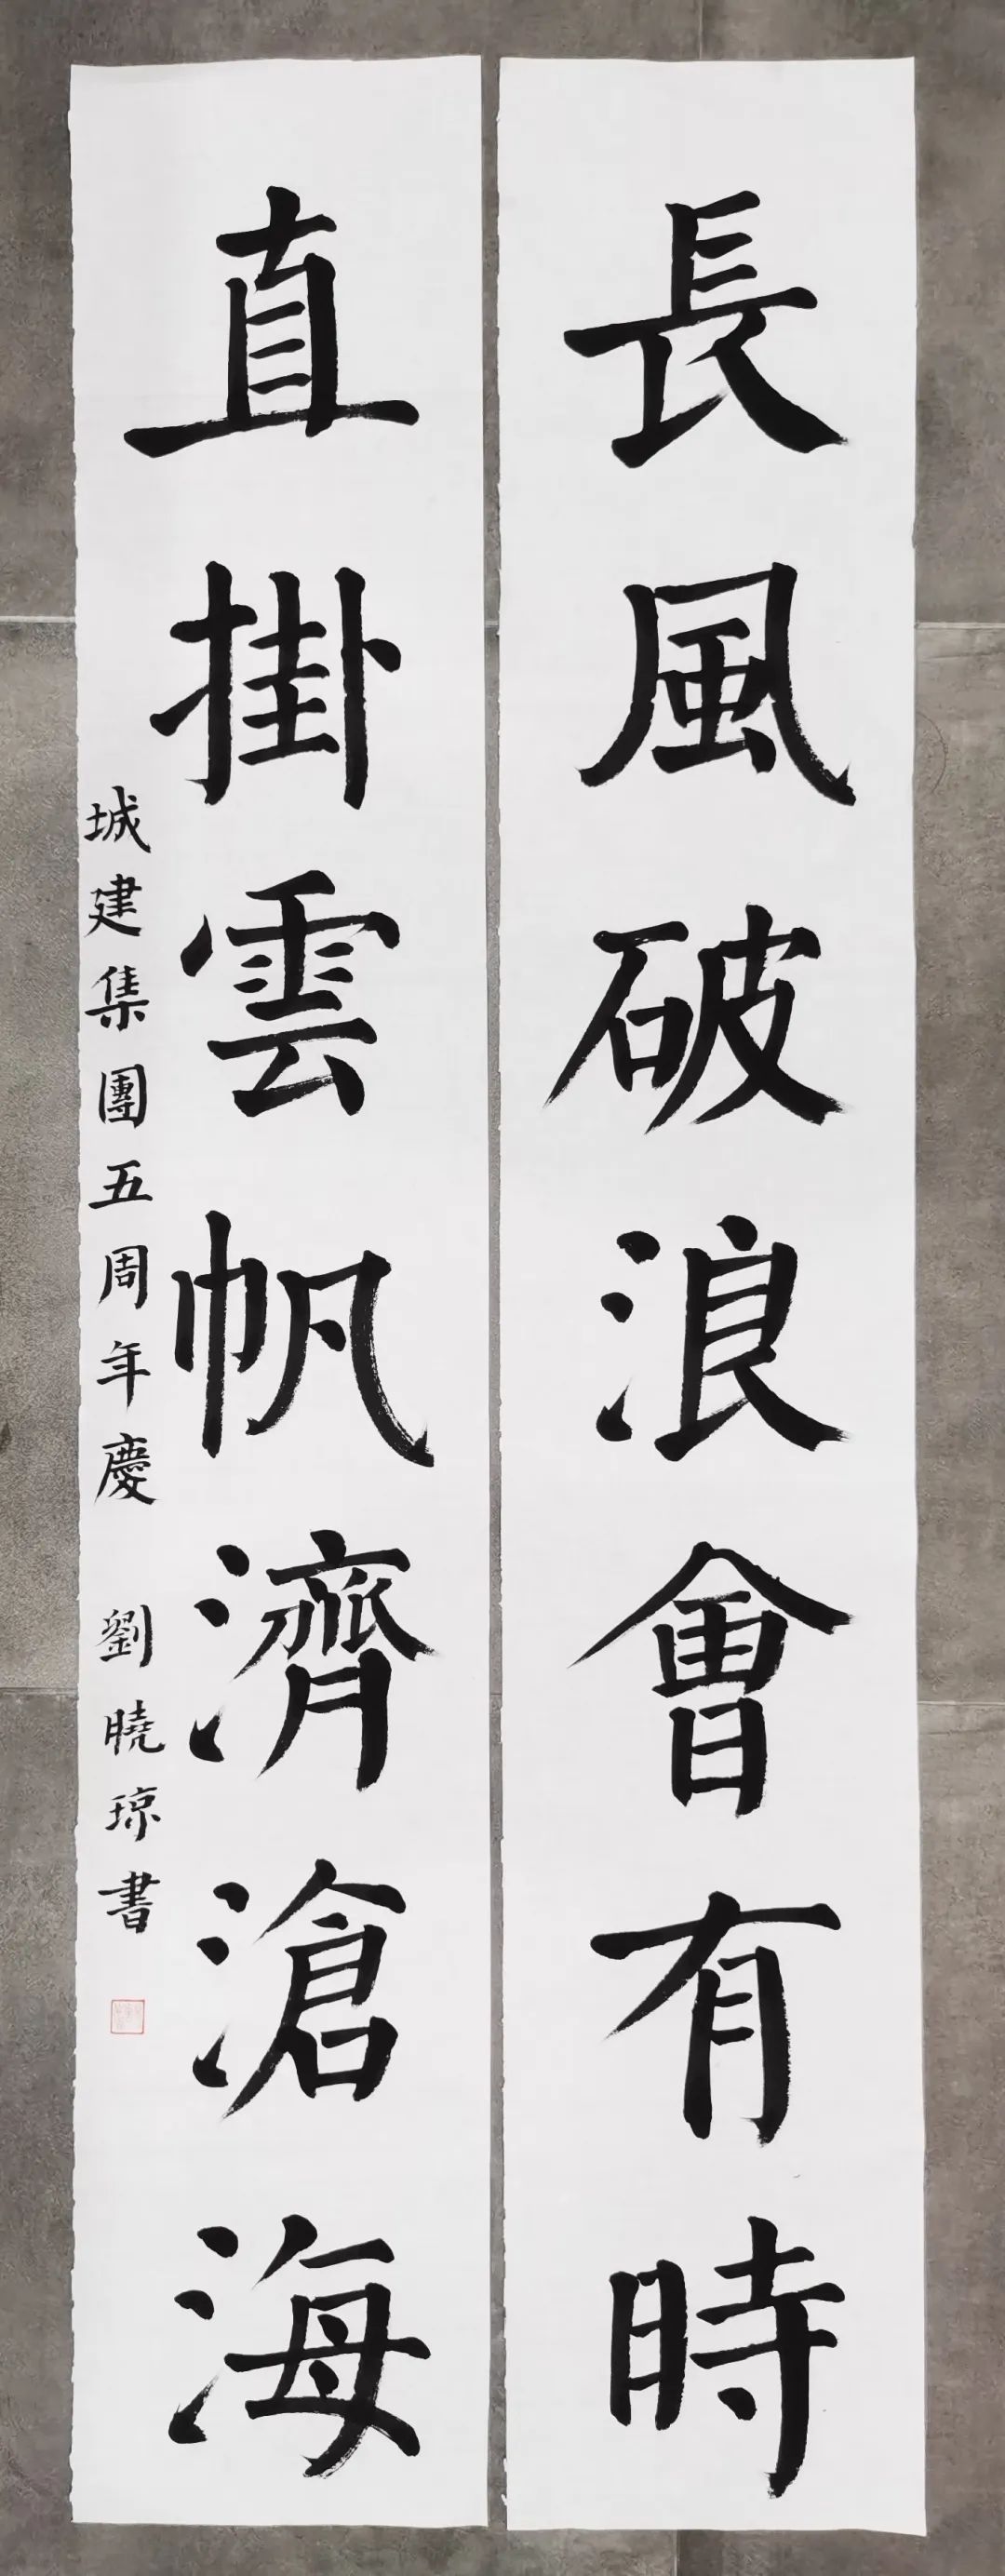 長風破浪會有時
直掛雲帆濟滄海
城建集團五周年慶 劉曉琼書